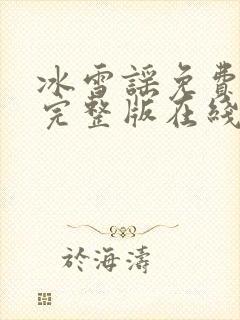 冰雪謠免費
完整版在綫
於海濤